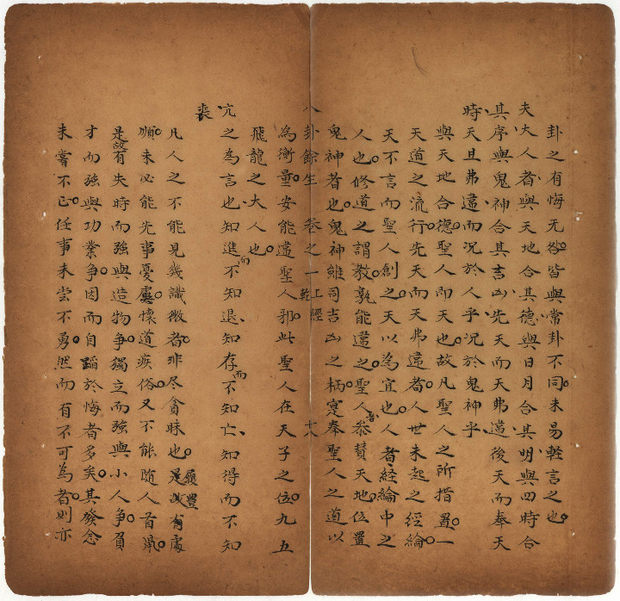 卦之有悔无咎皆與常卦不同未易輕言之也
夫大人者與天地合其德與日月合其明與四時合
其序與鬼神合其吉凶先天而天弗違後天而奉天
時天且弗違而況於人乎況於鬼神乎
與天地合德聖人即天也故凡聖人之所指置一
天道之流行先天而天弗違者人世未起之經綸
天不言而聖人創之天以為宜也人者經綸中之
人也修道之謂教孰能違之聖人參贊天地位置
鬼神者也鬼神雖司吉凶之柄寔奉聖人之道以
八卦餘生 卷之一 上經 乾 十六
為衡量安能違聖人邪此聖人在天子之位九五
飛龍之大人也
亢之為言也知進而不知退知存而不知亡知得而不知
喪
凡人之不能見幾識微者非盡貪昧也是誠有處
順未必能先事憂虞懷道疾俗又不能隨人首鼠
是故有失時而強與造物爭獨立而強與小人爭負
才而強與功業爭因而自蹈於悔者多矣其發念
未嘗不正任事未嘗不勇然而有不可為者則亦